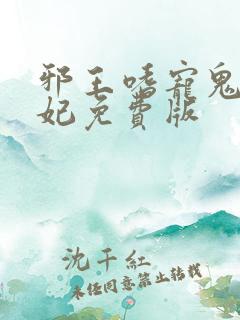 邪王嗜寵鬼
妃免費版
沈千紅
未經同意禁止轉載